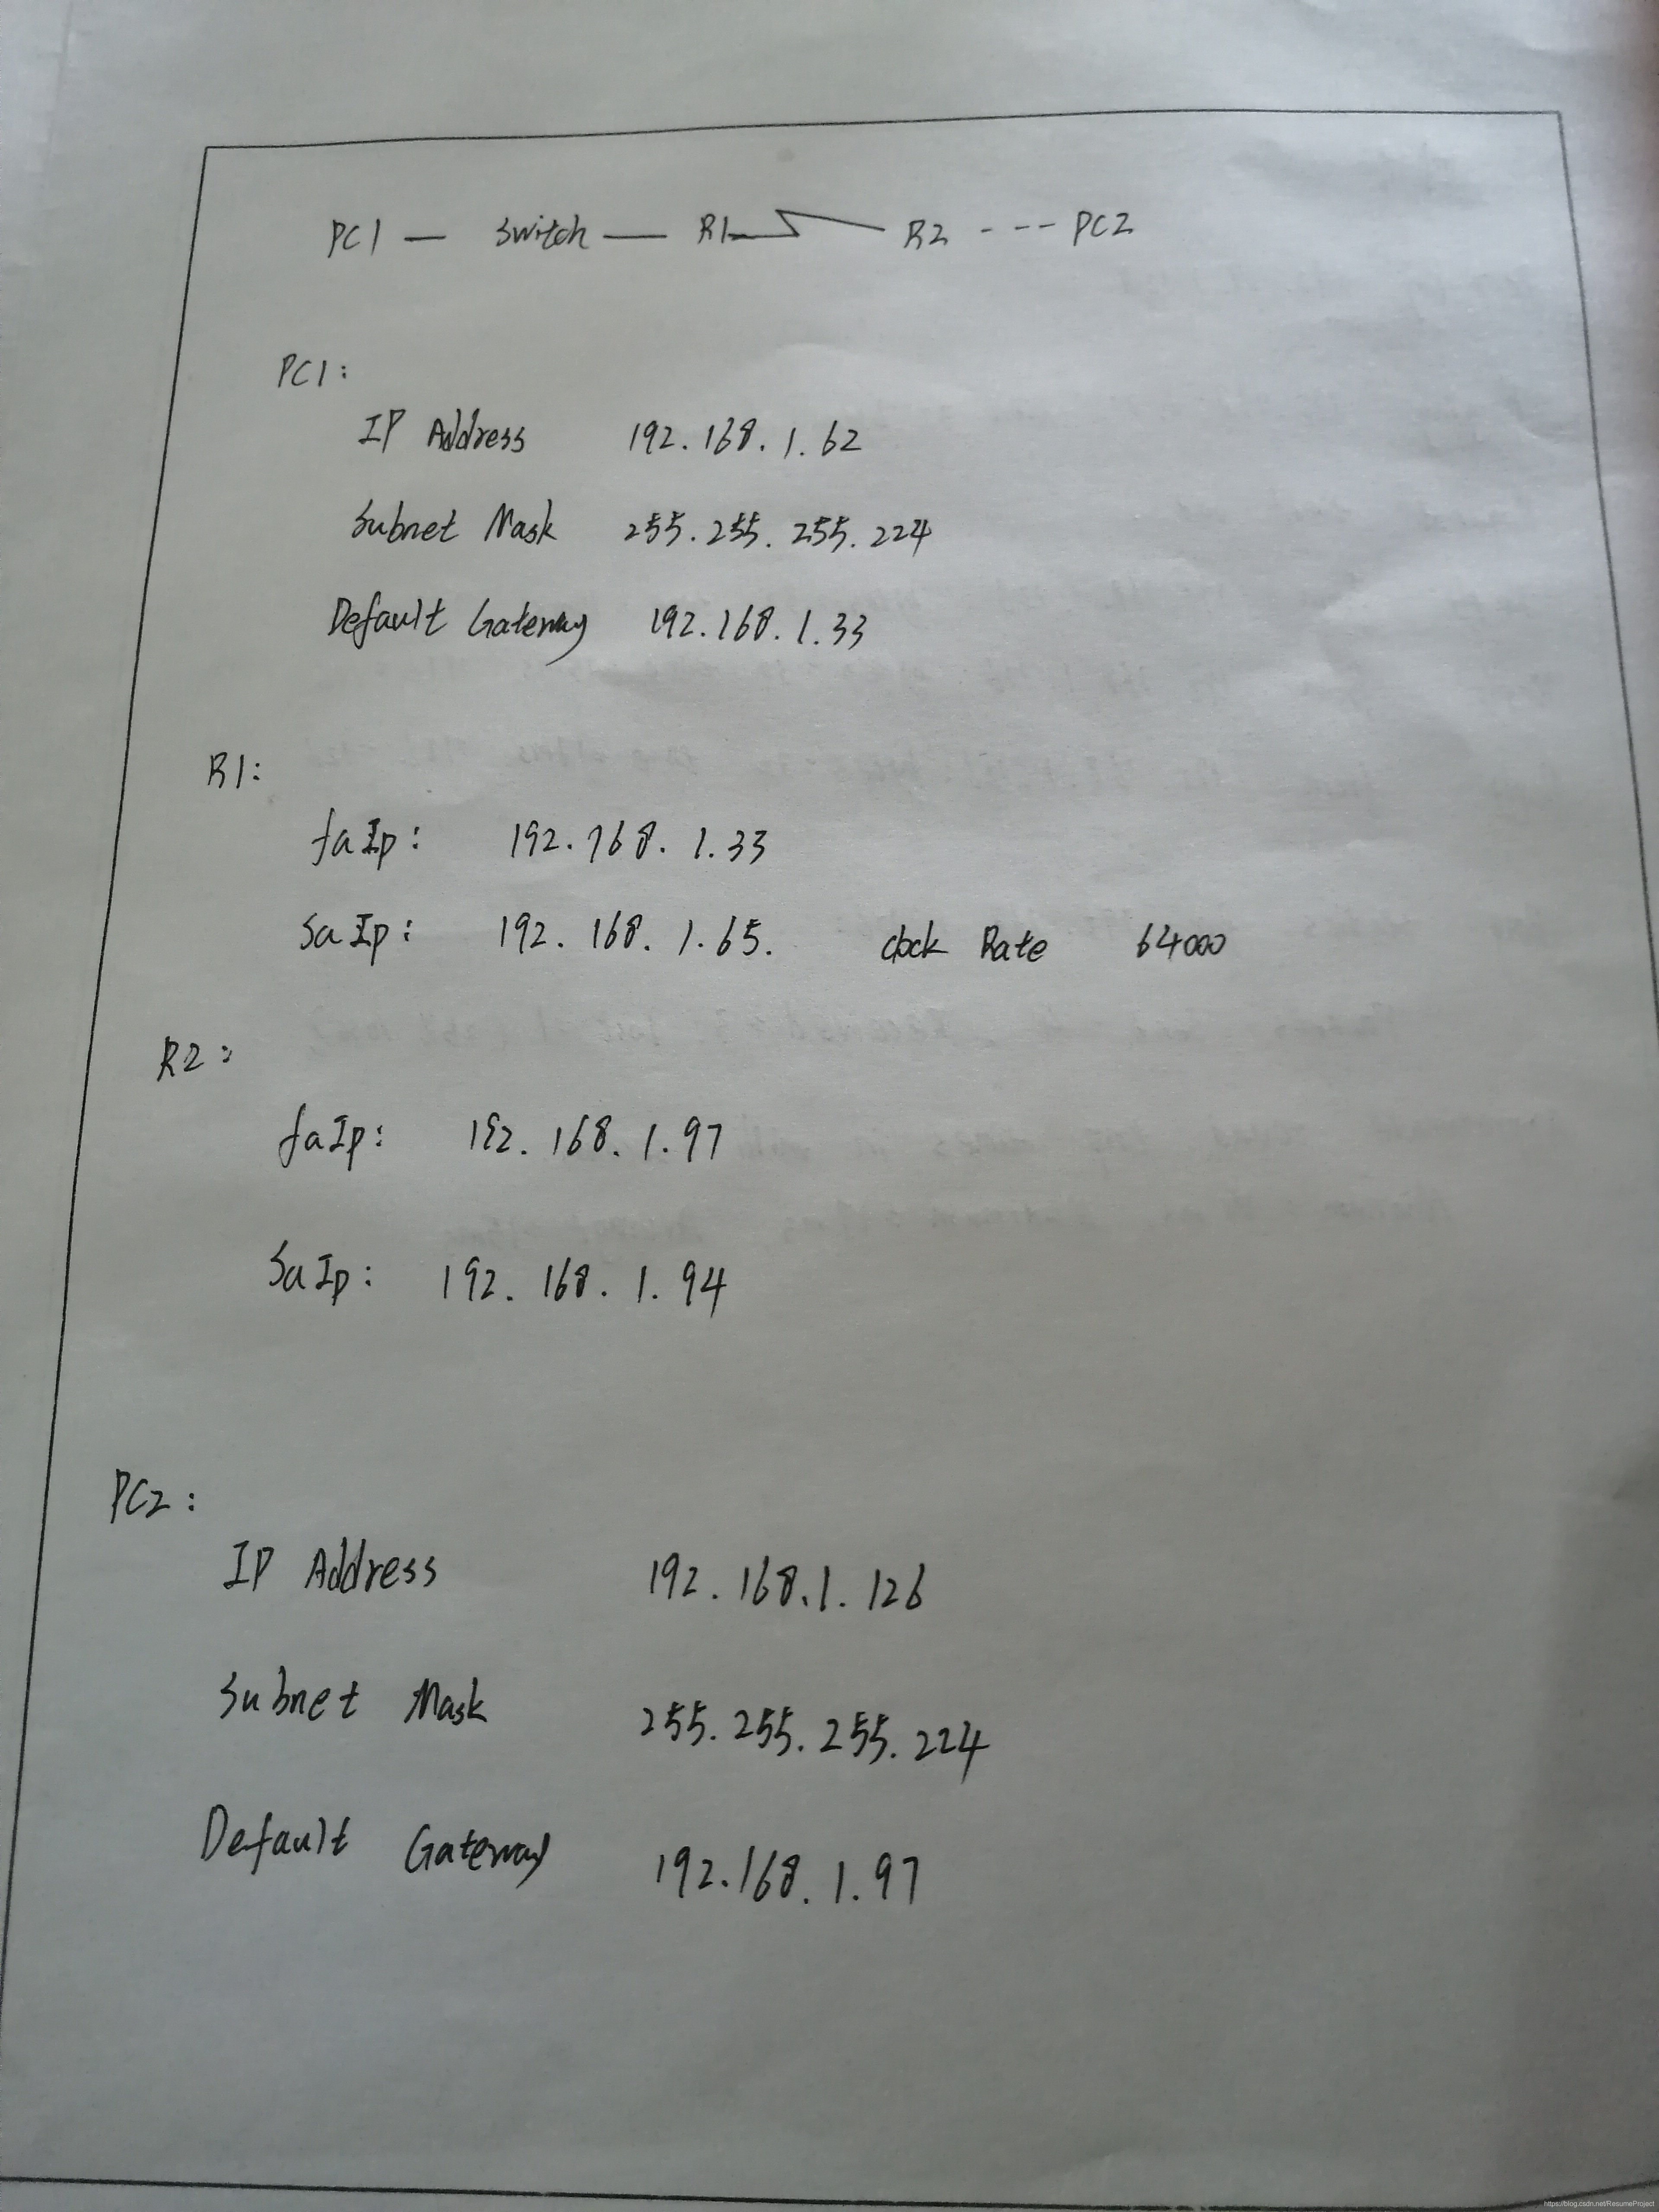 PC1 — Switch — R1 R2 - - - PC2
PC1:
IP Address 192.168.1.62
Subnet Mask 255.255.255.224
Default Gateway 192.168.1.33
R1:
faIp: 192.168.1.33
SaIp: 192.168.1.65. clock Rate 64000
R2:
faIp: 192.168.1.97
SaIp: 192.168.1.94
PC2:
IP Address 192.168.1.126
Subnet Mask 255.255.255.224
Default Gateway 192.168.1.97
https://blog.csdn.net/ResumeProject